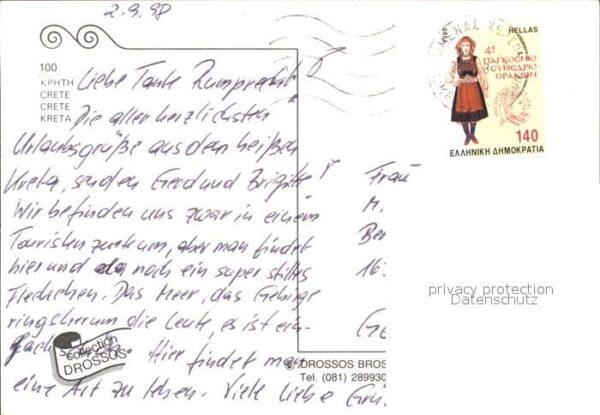 2.9.98
HELLAS
4º
ΠΑΓΚΟΣΜΙΟ
ΣΥΝΕΔΡΙΟ
ΘΡΑΚΩΝ
140
ΕΛΛΗΝΙΚΗ ΔΗΜΟΚΡΑΤΙΑ
100
ΚΡΗΤΗ
CRETE
CRETE
KRETA
Liebe Tante
Die allerherzlichsten
Urlaubsgrüße aus dem heißen
Kreta, senden Gerd und Brigitte
Wir befinden uns zwar in einem
Touristenzentrum, aber man findet
hier und da noch ein super stilles
Fleckchen. Das Meer, das Gebirge
ringsherum die Leute, es ist ein-
fach Hier findet man
eine Art zu leben. Viele liebe Grü
Frau
M.
Ber
privacy protection
Datenschutz
collection
DROSSOS
DROSSOS BROS
Tel. (081) 289930